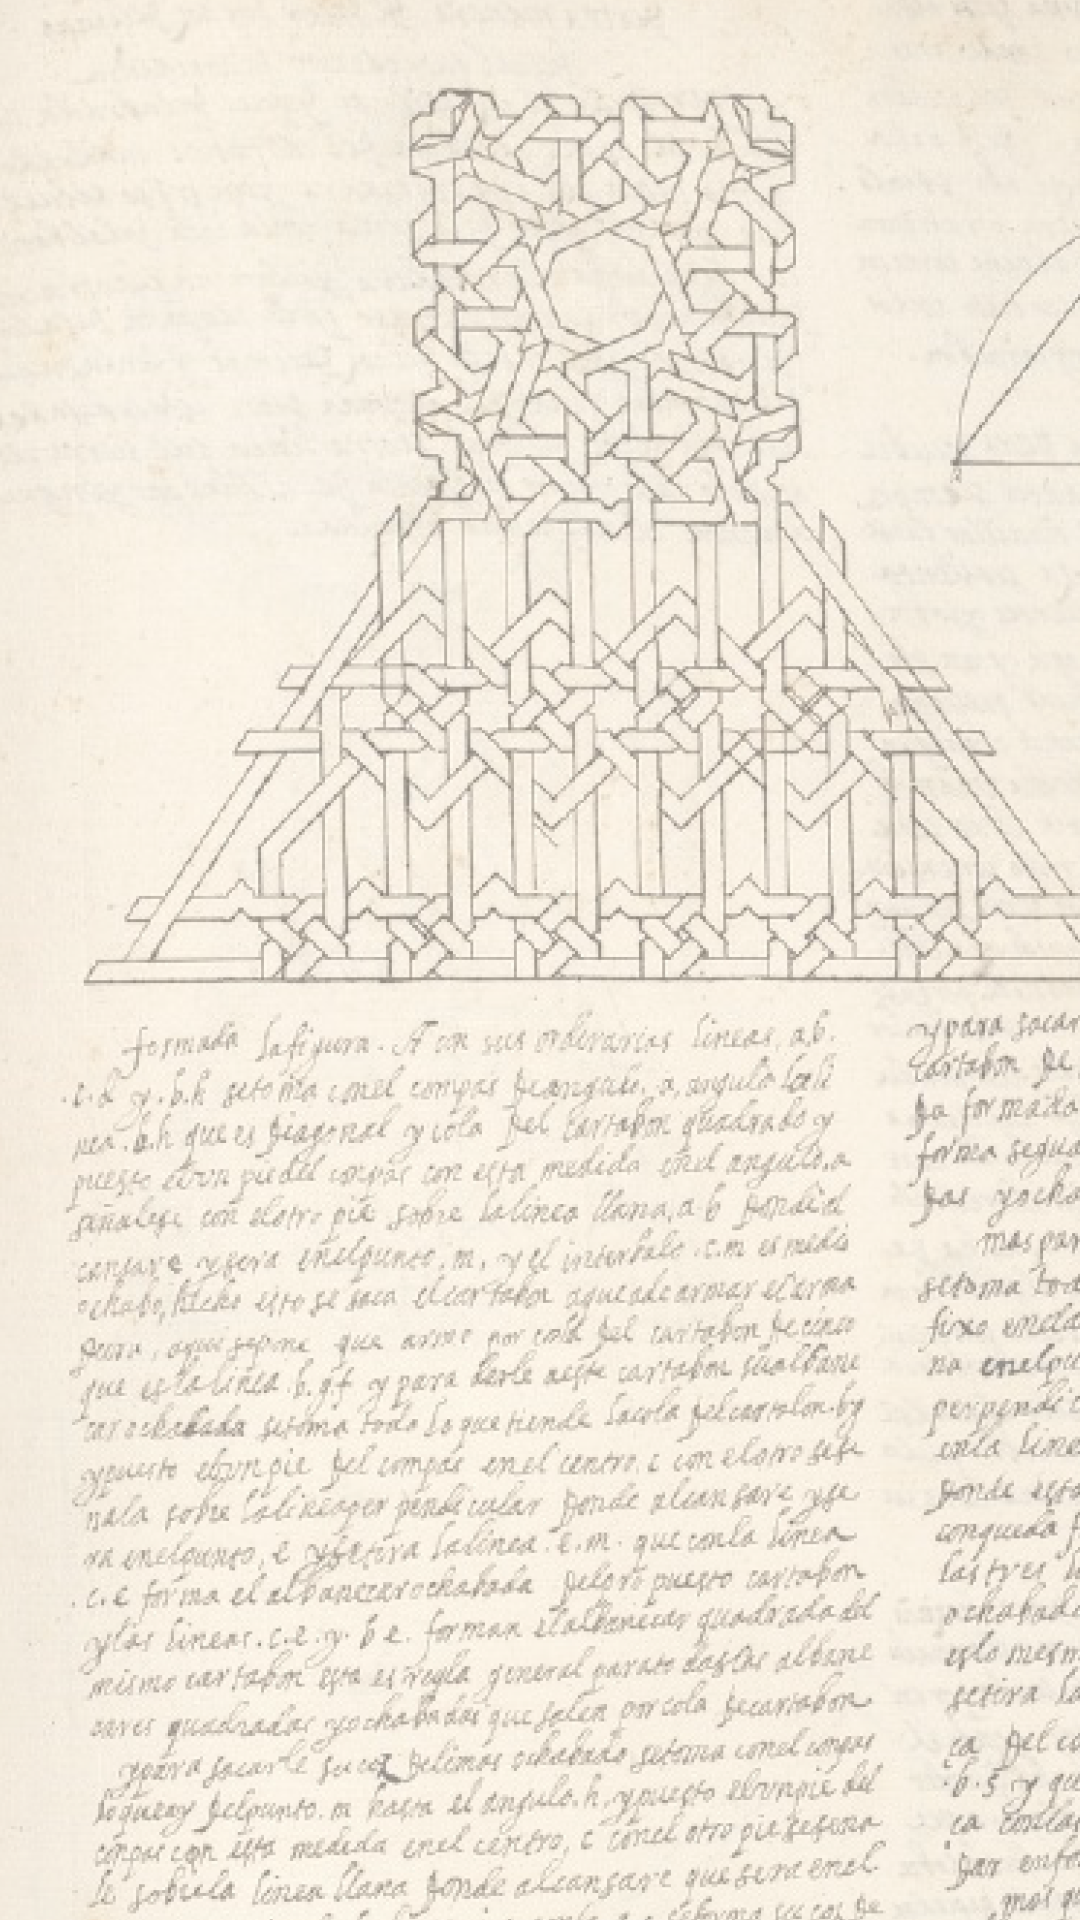 formada la figura. A con sus ordinarias lineas, a.b.
.c.d y .b.h setoma conel compas deangulo, a, angulo la li
nea .b.h que es diagonal y cola del cartabon quadrado y
puesto elvn piedel compas con esta medida enel angulo.a
señalese con elotro pie sobre lalinea llana, a b donde al
cansare ysera enelpunto, m, y el interbalo .c.m es medio
ochabo, hecho esto se saca elcartabon aqueadearmar el arma
dura, aqui sepone que arme por cola del cartabon decinco
que es la linea .b.g.f y para darle aeste cartabon sualbane
car ochabada setoma todo lo que tiende lacola delcartabon.bg
ypuesto elvn pie del compas en el centro. c con elotro sese
nala sobre lalineaperpendicular donde alcansare yse
ra enelpunto, e ysetira lalinea .e.m. que conla linea
.c.e forma el albanecarochabada delpropuesto cartabon
ylas lineas .c.e .y. b e. forman elalbanecar quadrada del
mismo cartabon esta es regla general paratodaslas albane
cares quadradas yochabadas que salen porcola decartabon
ypara sacarle sucoz delimas ochabado setoma conel compas
loqueay delpunto. m hasta el angulo. h, ypuesto elvnpie del
compas con esta medida enel centro, c conel otro pie seseña
le sobrela linea llana donde alcansare que sera enel
ypara sacar
cartabon de
da formada
forma segun
das yocha
mas par
setoma tod
fixo enela
na enelpu
perpendic
enla line
donde esta
conqueda f
las tres l
ochabado
eslo mesm
setira la
ca del co
.b.5 y que
ca conlas
dar enta
mos qu